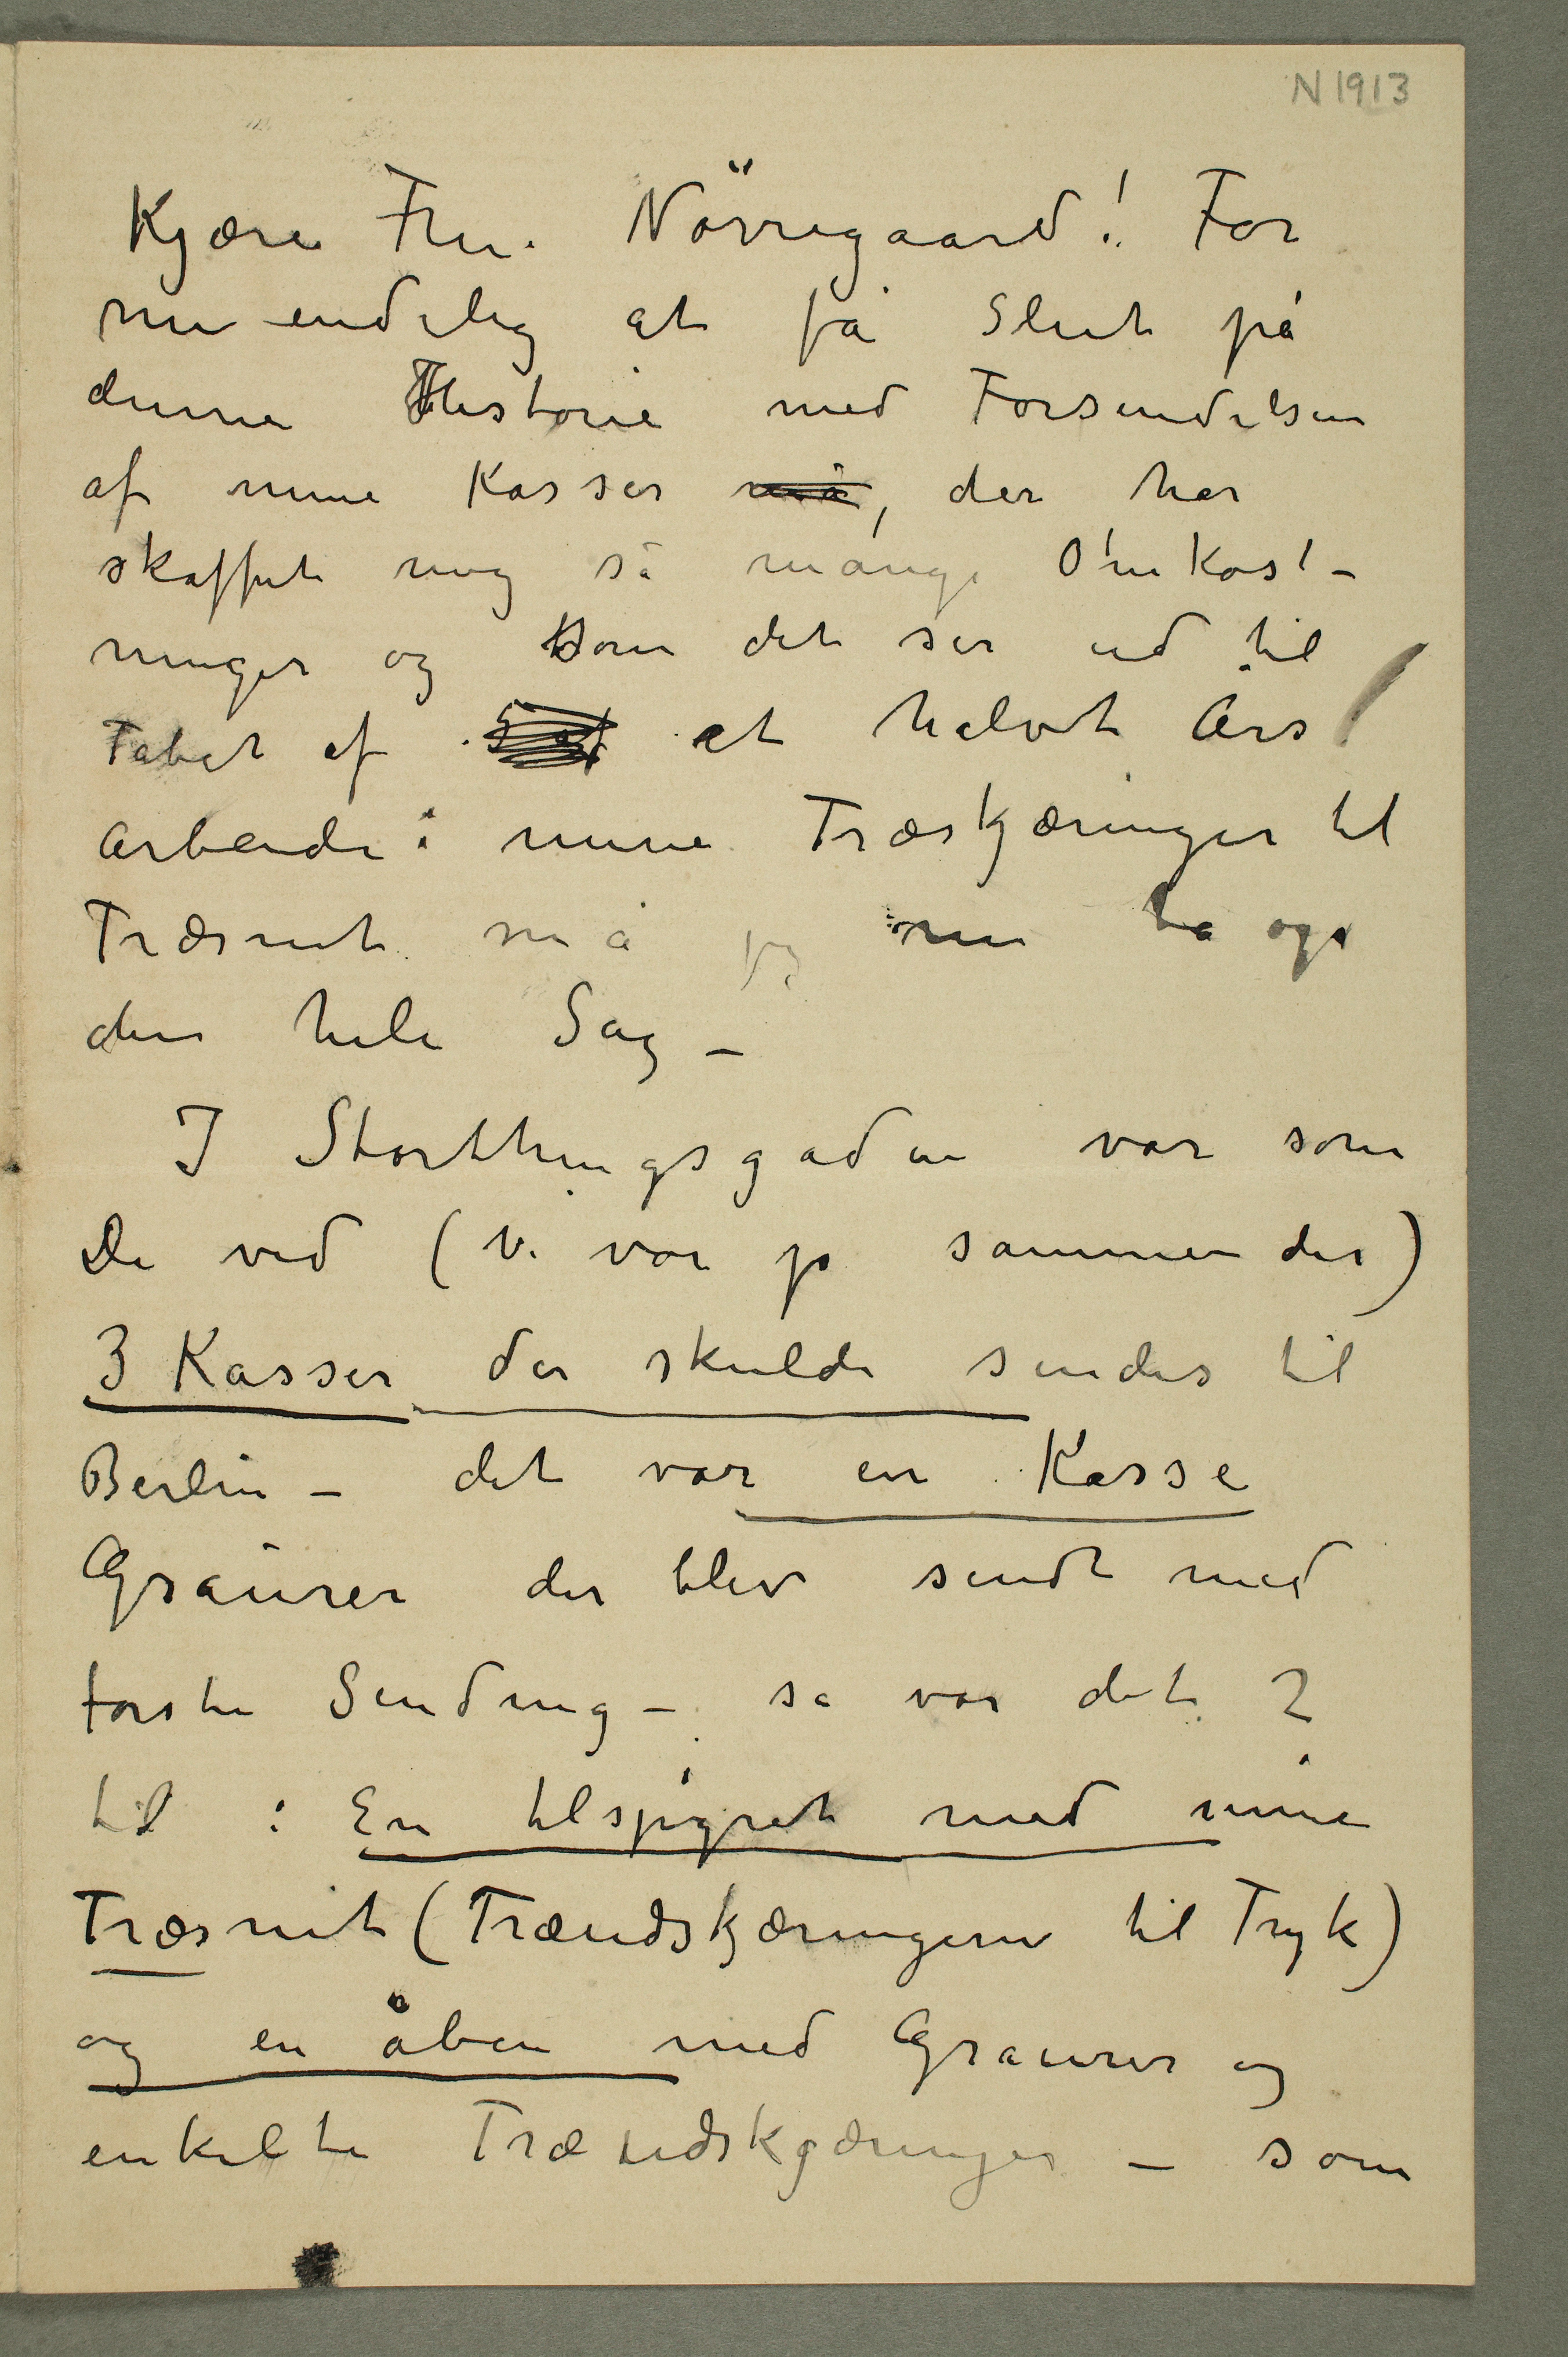 N 1913
Kjære Fru Nörregaard! For
nu endelig at få Slut på
denne Historie med Forsendelsen
af mine Kasser må, der har
skaffet mig så mange Omkost-
ninger og som det ser ud til
Tabet af et halvt Års
Arbeide i mine Træskjæringer til
Træsnit må jeg nu ta op
den hele Sag –
I Storthingsgaden var som
De ved (Vi var jo sammen der)
3 Kasser der skulde sendes til
Berlin – det var en Kasse
Graurer der blev sendt med
forste Sending – så var det 2
til : En tilspigret med mine
Træsnit (Træudskjæringerne til Tryk)
og en åben med Graurer og
enkelte Træudskjæringer – som